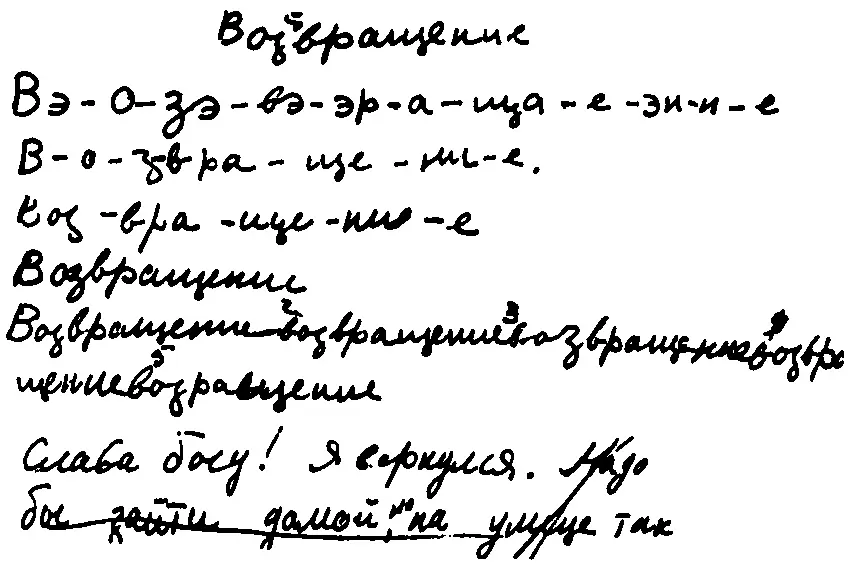 Возвращение
Вэ-о-зэ-вэ-эр-а-ща-е-эн-и-е
В-о-звра-ще-ни-е.
Воз-вра-ще-ние-е
Возвращение
Возвращение²возвращение³возвращение⁴возвра
щение⁵возращение
Слава богу! Я вернулся. Надо
бы зайти домой, на улице так